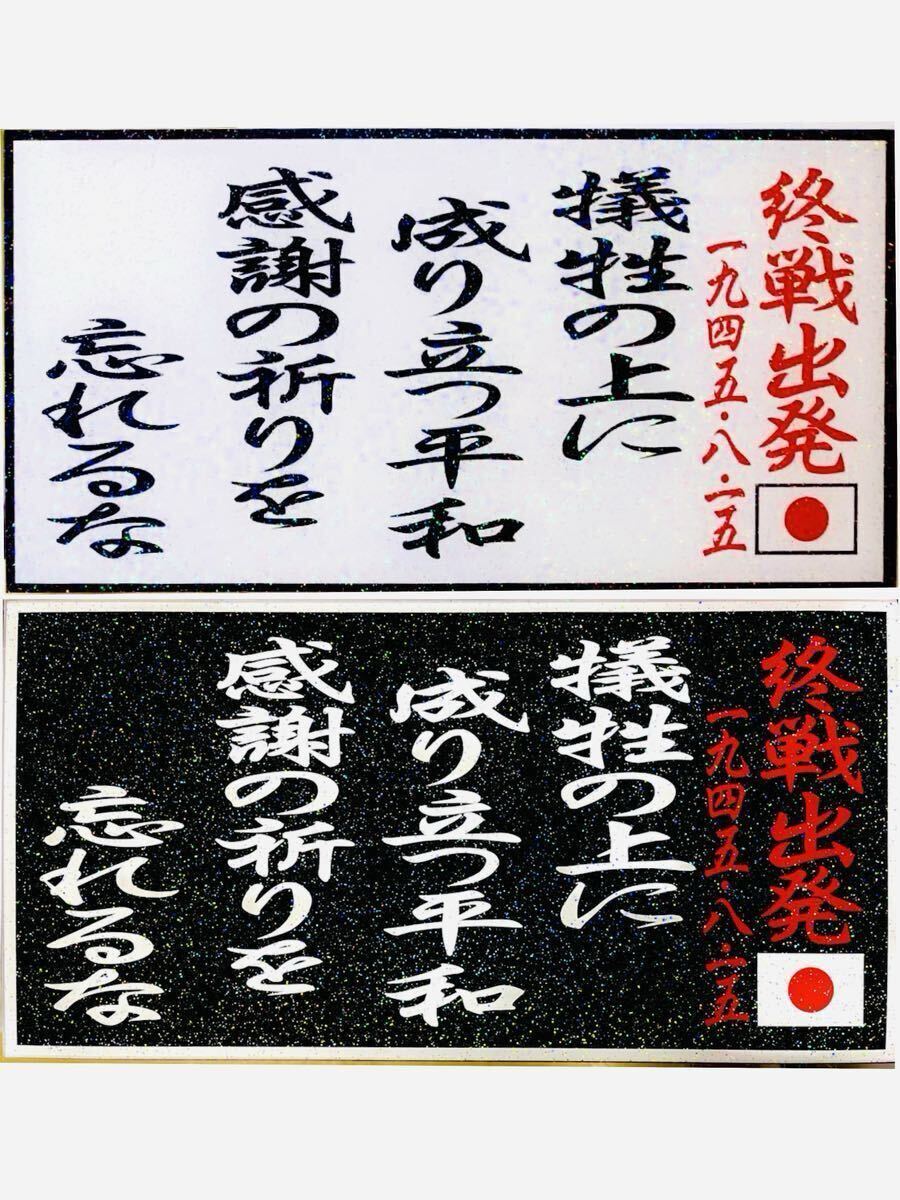 終戦出発
一九四五・八・一五
犠牲の上に
成り立つ平和
感謝の祈りを
忘れるな
終戦出発
一九四五・八・一五
犠牲の上に
成り立つ平和
感謝の祈りを
忘れるな